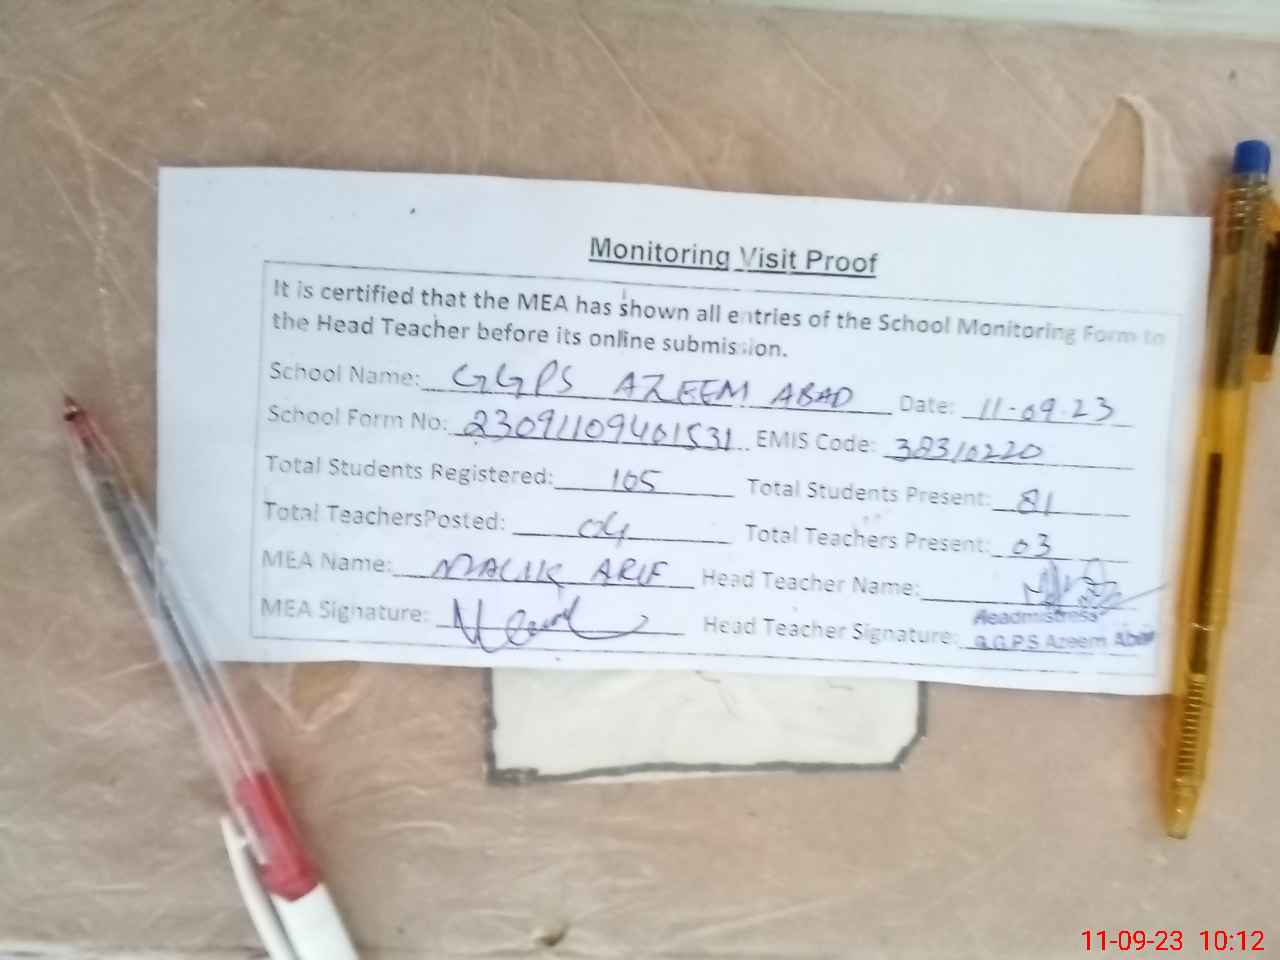 Monitoring Visit Proof
It is certified that the MEA has shown all entries of the School Monitoring Form to
the Head Teacher before its online submission.
School Name: GGPS AZEEM ABAD Date: 11-09-23
School Form No: 23091109401531 EMIS Code: 38310220
Total Students Registered: 105 Total Students Present: 81
Total TeachersPosted: 04 Total Teachers Present: 03
MEA Name: MALIK ARIF Head Teacher Name:
MEA Signature: Head Teacher Signature:
Headmistress
G.G.P.S Azeem Abad
11-09-23 10:12